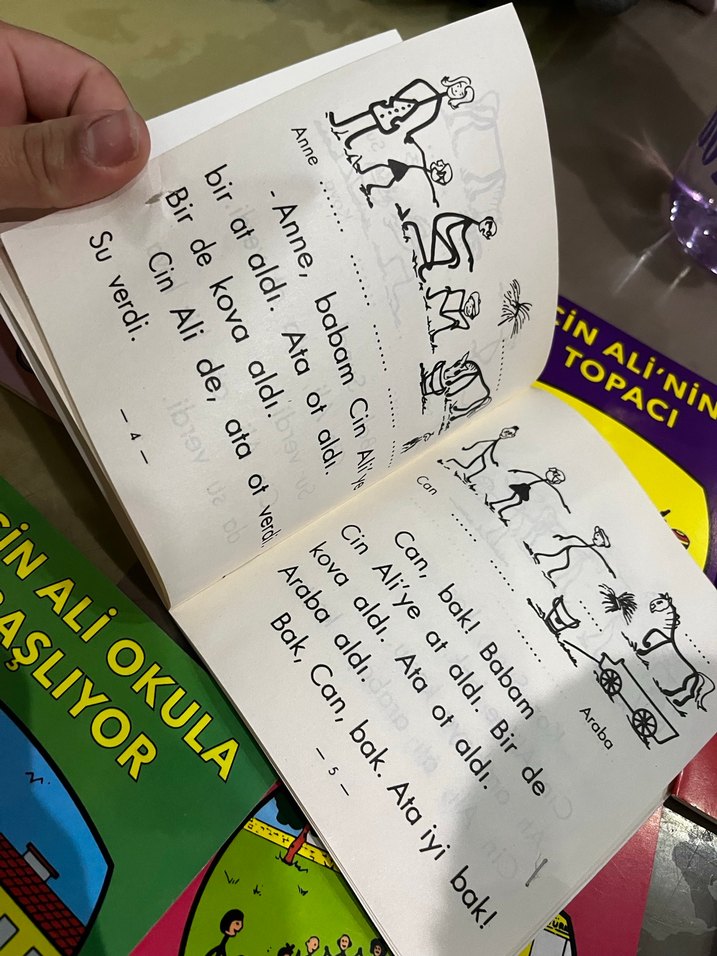 Anne
- Anne, babam Cin Ali'ye
bir at aldı. Ata ot aldı.
Bir de kova aldı.
Cin Ali de, ata ot verdi.
Su verdi.
— 4 —
Can
Araba
Can, bak! Babam
Cin Ali'ye at aldı. Bir de
kova aldı. Ata ot aldı.
Araba aldı.
Bak, Can, bak. Ata iyi bak!
— 5 —
CİN ALİ'NİN
TOPACI
CİN ALİ OKULA
BAŞLIYOR